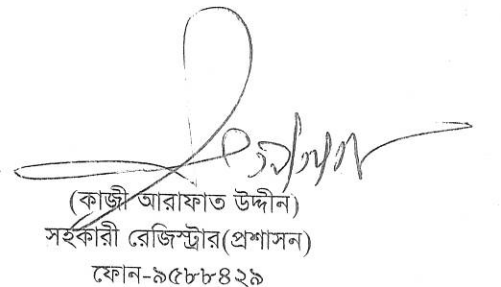 (কাজী আরাফাত উদ্দীন)
সহকারী রেজিস্ট্রার(প্রশাসন)
ফোন-৯৫৮৮৪২৯